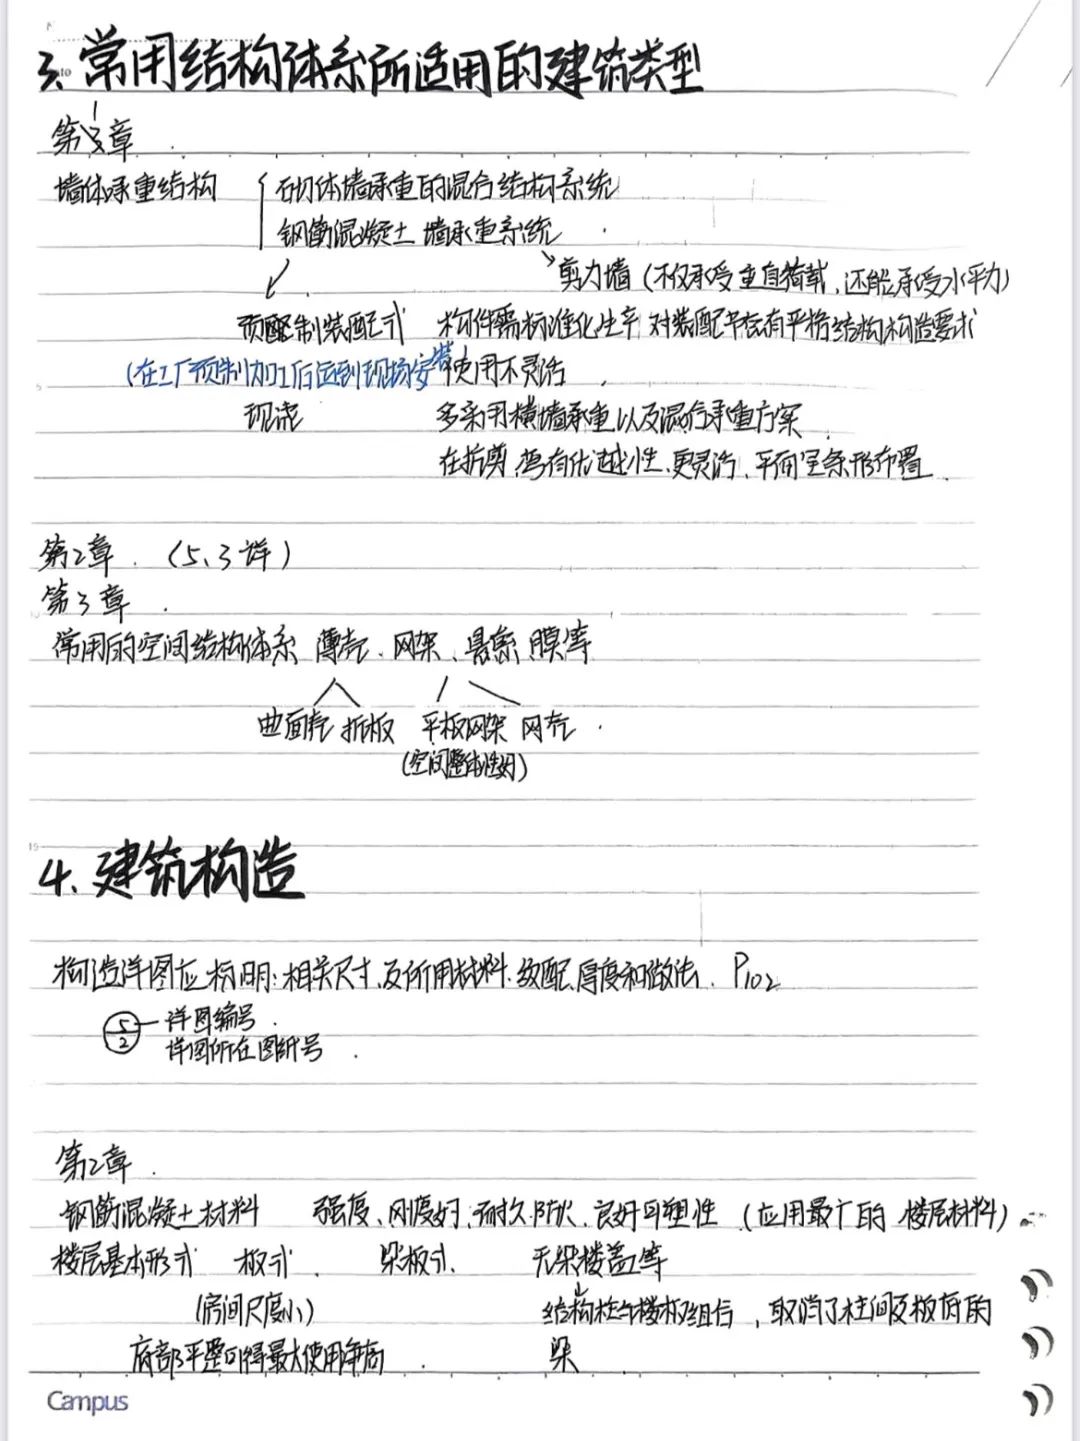 3、常用结构体系所适用的建筑类型
第1章
墙体承重结构 { 砌体墙承重的混合结构系统
钢筋混凝土 墙承重系统
剪力墙（不仅承受垂直荷载、还能承受水平力）
预制装配式 构件需标准化生产 对装配节点有严格结构构造要求
（在工厂预制加工后运到现场安装） 使用不灵活
现浇 多采用横墙承重以及混合承重方案
在抗剪、弯有优越性、更灵活、平面呈条形布置
第2章 （5、3详）
第3章
常用的空间结构体系 薄壳、网架、悬索、膜等
曲面壳 折板 平板网架 网壳
（空间整体性好）
4、建筑构造
构造详图应标明：相关尺寸、及所用材料、级配、厚度和做法、P102
5 详图编号
2 详图所在图纸号
第2章
钢筋混凝土材料 强度、刚度好、耐久、防火、良好可塑性（应用最广的 楼层材料）
楼层基本形式 板式、 梁板式、 无梁楼盖等
（房间尺度小） 结构柱与楼板组合，取消了柱间及板底的
底部平整可得最大使用净高 梁
Campus